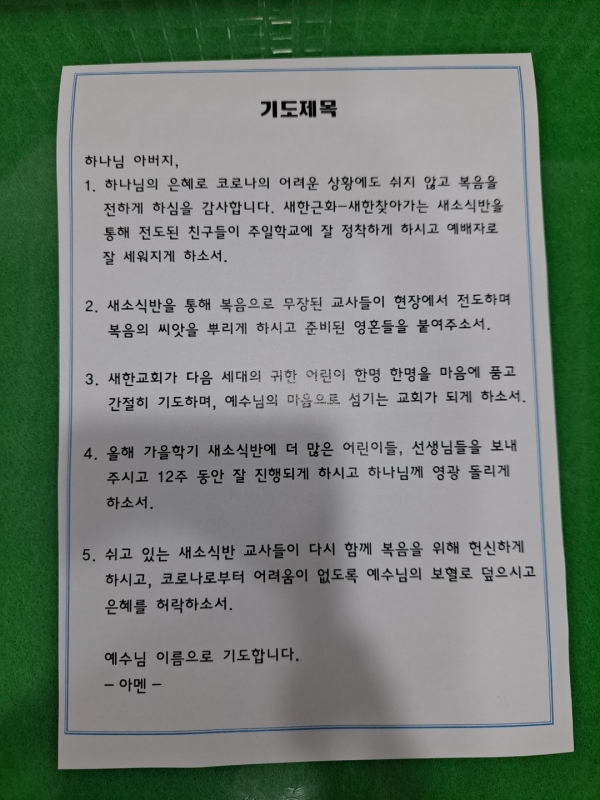 기도제목
하나님 아버지,
1. 하나님의 은혜로 코로나의 어려운 상황에도 쉬지 않고 복음을
전하게 하심을 감사합니다. 새한근화-새한찾아가는 새소식반을
통해 전도된 친구들이 주일학교에 잘 정착하게 하시고 예배자로
잘 세워지게 하소서.
2. 새소식반을 통해 복음으로 무장된 교사들이 현장에서 전도하며
복음의 씨앗을 뿌리게 하시고 준비된 영혼들을 붙여주소서.
3. 새한교회가 다음 세대의 귀한 어린이 한명 한명을 마음에 품고
간절히 기도하며, 예수님의 마음으로 섬기는 교회가 되게 하소서.
4. 올해 가을학기 새소식반에 더 많은 어린이들, 선생님들을 보내
주시고 12주 동안 잘 진행되게 하시고 하나님께 영광 돌리게
하소서.
5. 쉬고 있는 새소식반 교사들이 다시 함께 복음을 위해 헌신하게
하시고, 코로나로부터 어려움이 없도록 예수님의 보혈로 덮으시고
은혜를 허락하소서.
예수님 이름으로 기도합니다.
- 아멘 -